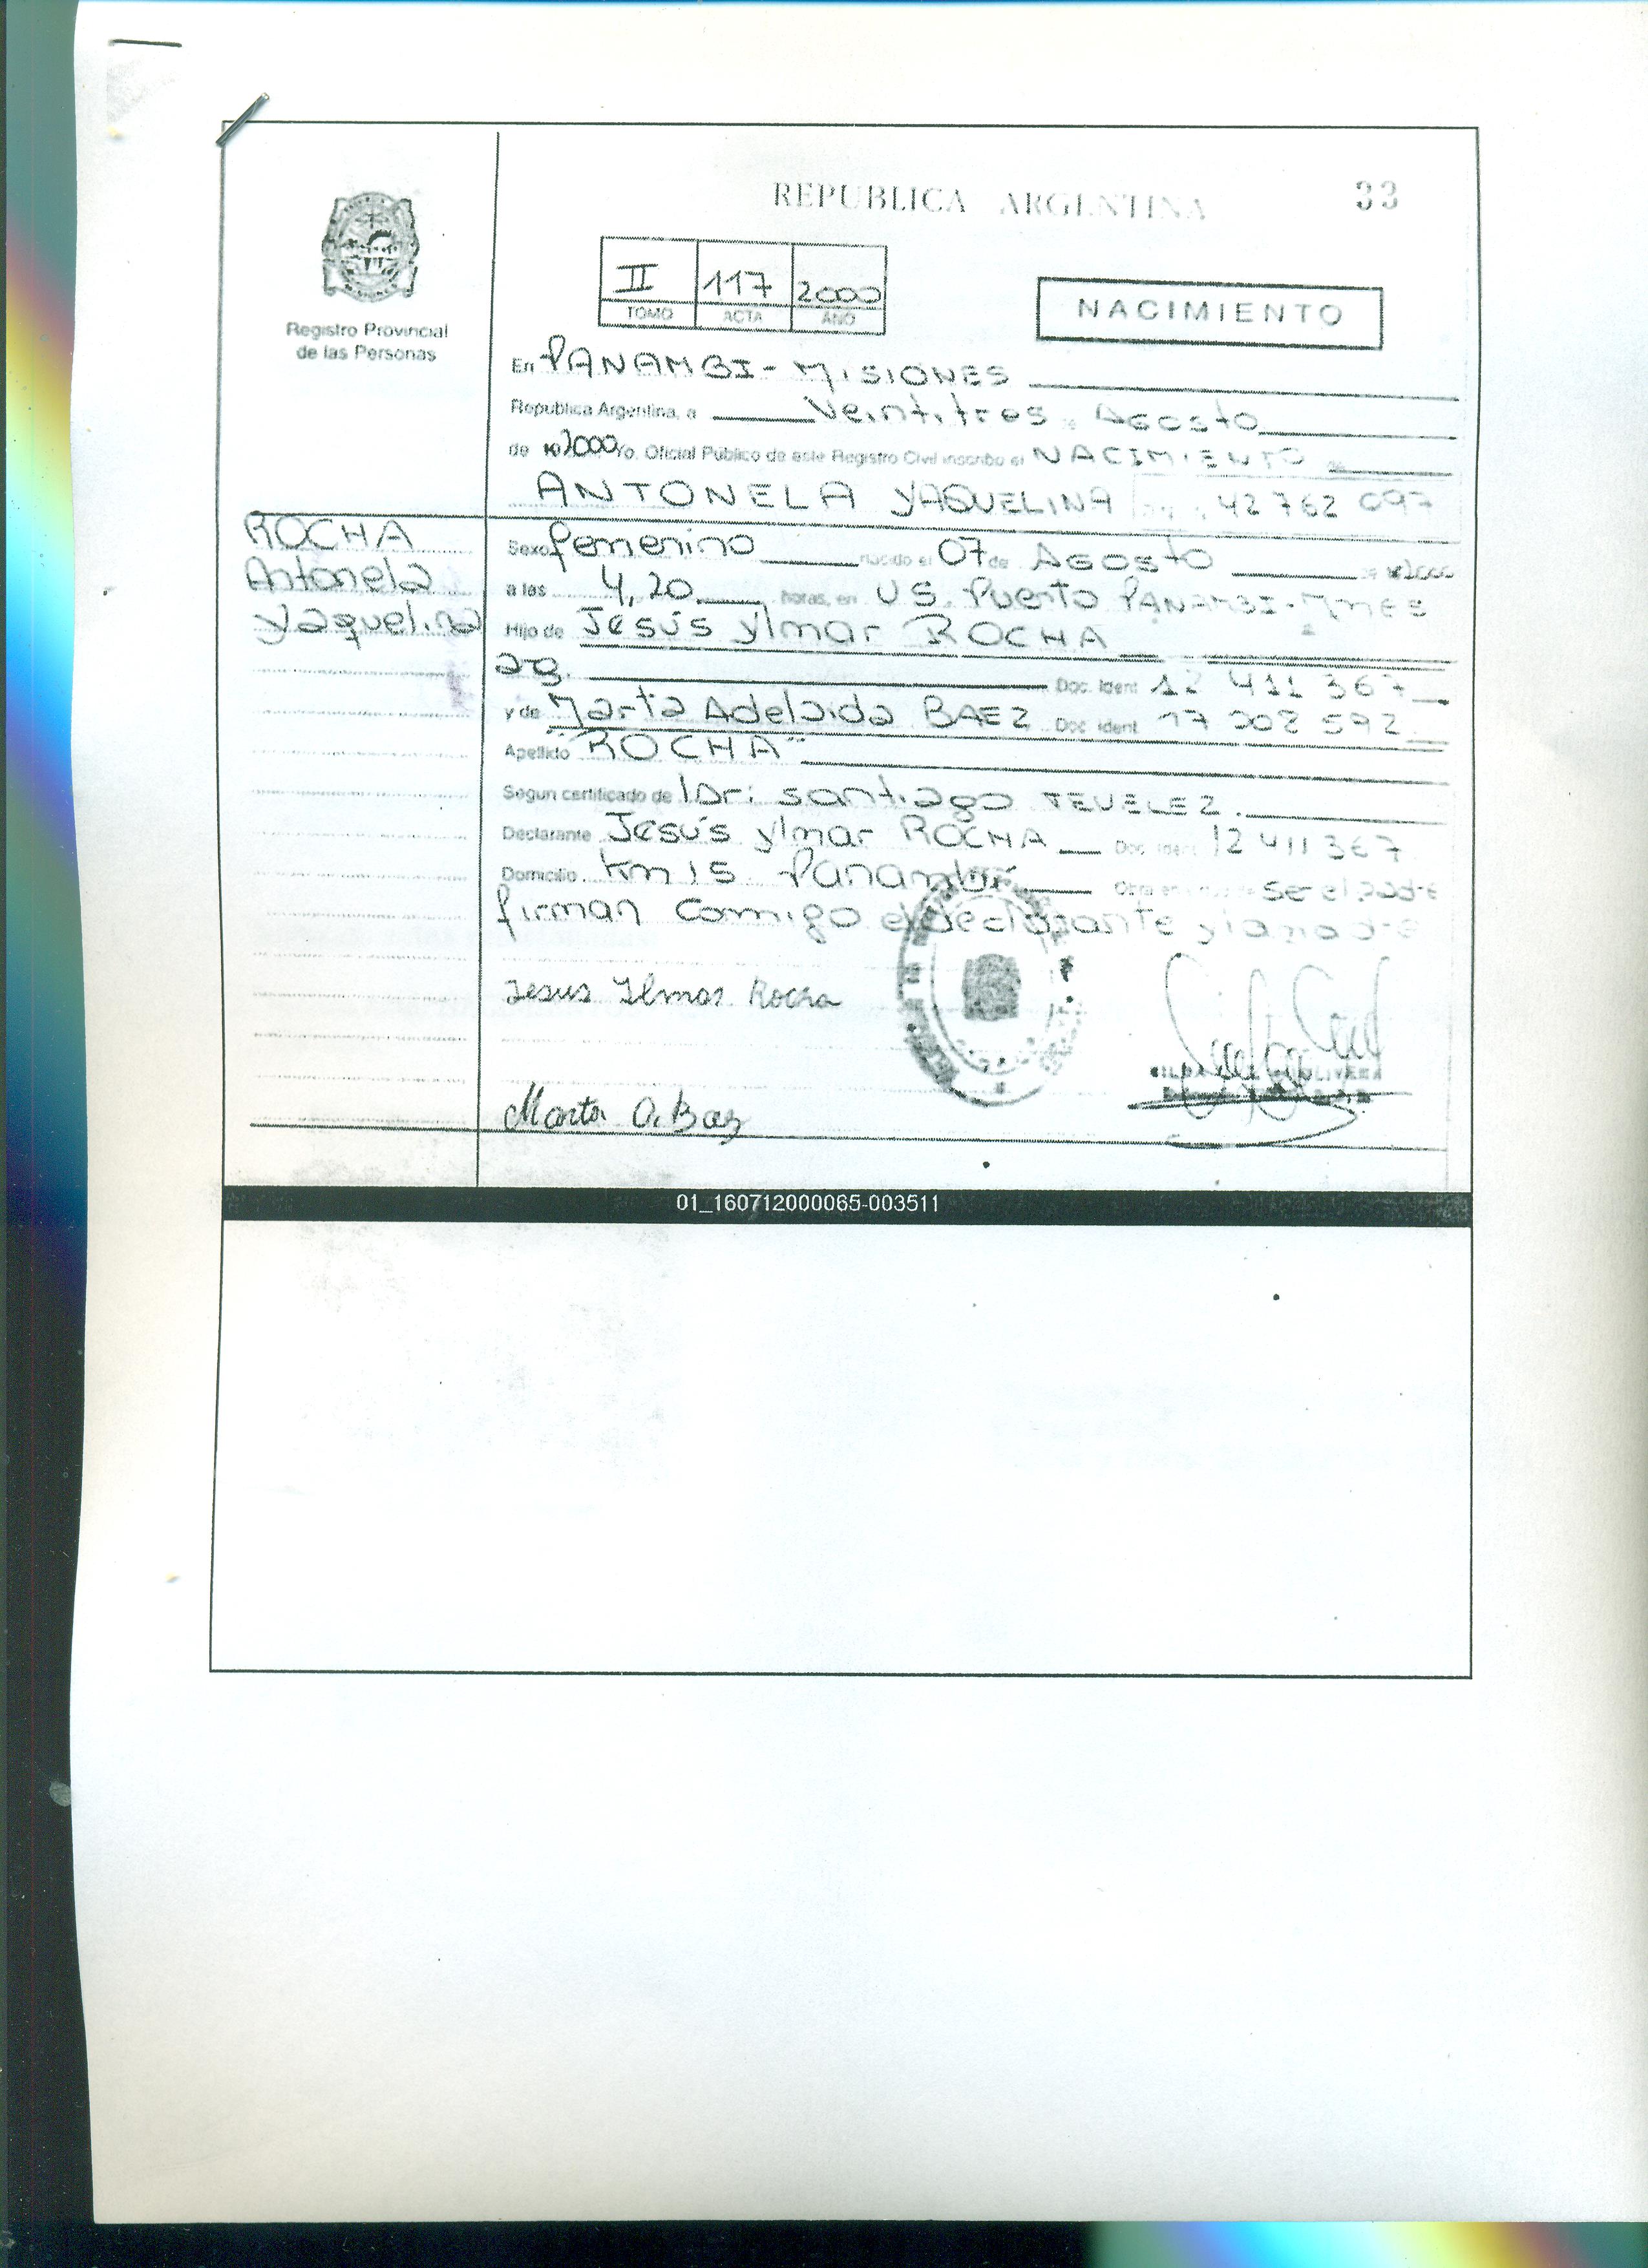 REPUBLICA ARGENTINA 33
II 117 2000
TOMO ACTA AÑO
NACIMIENTO
Registro Provincial
de las Personas
En PANAMBI - MISIONES
Republica Argentina, a Veintitres de Agosto
de 2000 Yo. Oficial Público de este Registro Civil inscribo el NACIMIENTO de
ANTONELA YAQUELINA 42 762 097
ROCHA
Antonela
Yaquelina
Sexo femenino nacido el 07 de Agosto de 2000
a las 4,20 horas, en US. Puerto PANAMBI - Mnes
Hijo de Jesús ylmar ROCHA
Doc. Ident 12 411 367
y de Marta Adelaida BAEZ Doc. Ident. 17 202 592
Apellido "ROCHA"
Segun certificado de Santiago TEVELEZ.
Declarante Jesús ylmar ROCHA Doc. Ident 12 411 367
Domicilio Km 15 Panambí Obra en ser el padre
firman conmigo el declarante y la madre
Jesus Ylmar Rocha
Marta A. Baez
01_160712000065-003511